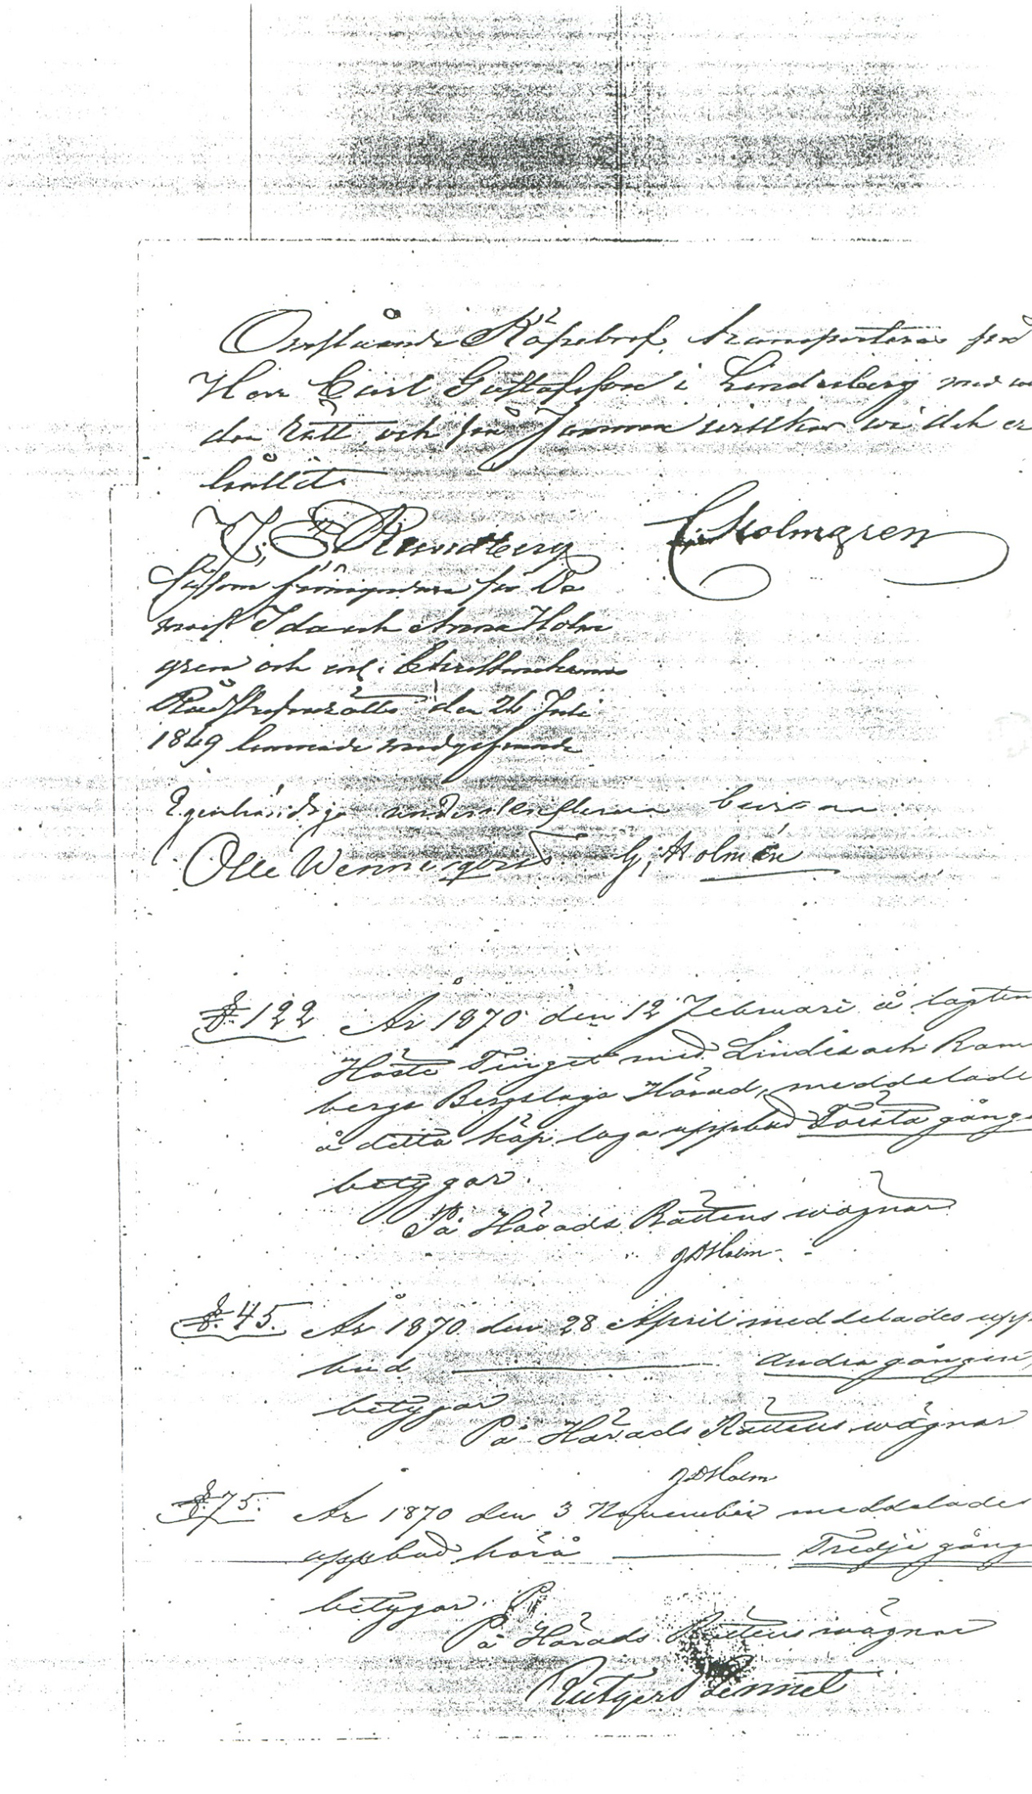 Ofvestående Köpebref transporteras
Herr Carl Gustafsson i Lindesberg med
den Rätt och
hållit.
Rundberg C. Holmgren
Såsom förmyndare för De
Ida och Anna Holm
gren och enl. Christinehamns
Rådstufvurätts den 26 Juli
1869 lemnade medgifvande
Egenhändiga underskrifterna
Olle Wennerqvist G. Holmén
§. 122 År 1870 den 12 Februari å lagtim
Höste Tinget med Lindes och Rams
bergs Bergslags Härad, meddelades
å detta köp laga uppbud Första gången
betygar.
På Härads Rättens wägnar
J D Holm
§. 45. År 1870 den 28 April meddelades upp
bud Andra gången,
betygar
På Härads Rättens wägnar
J D Holm
§. 75. År 1870 den 3 November meddelades
uppbud härå Tredje gång
betygar.
På Härads Rättens wägnar
Rutger Bennet